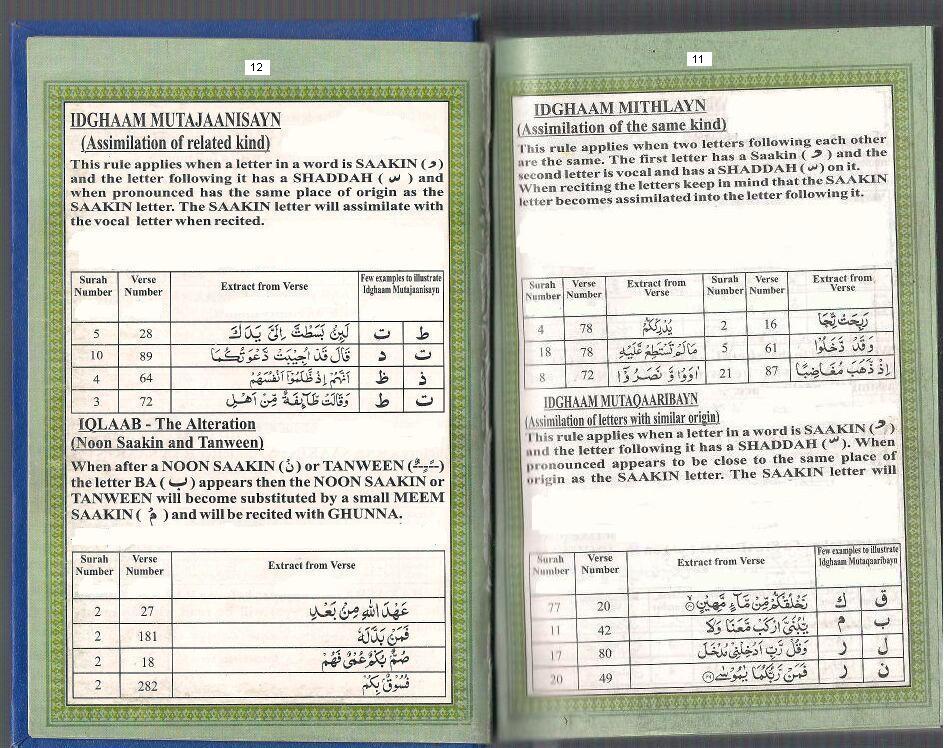 12
IDGHAAM MUTAJAANISAYN
(Assimilation of related kind)
This rule applies when a letter in a word is SAAKIN ( ْ )
and the letter following it has a SHADDAH ( ّ ) and
when pronounced has the same place of origin as the
SAAKIN letter. The SAAKIN letter will assimilate with
the vocal letter when recited.
Surah Number Verse Number Extract from Verse Few examples to illustrate Idghaam Mutajaanisayn
5 28 لَئِنْۢ بَسَطْتَّ اِلَیَّ یَدَكَ ت ط
10 89 قَالَ قَدْ اُجِیْبَتْ دَّعْوَتُكُمَا د ت
4 64 اَنَّهُمْ اِذْ ظَّلَمُوْۤا اَنْفُسَهُمْ ظ ذ
3 72 وَقَالَتْ طَّآئِفَةٌ مِّنْ اَهْلِ ط ت
IQLAAB - The Alteration
(Noon Saakin and Tanween)
When after a NOON SAAKIN ( نْ ) or TANWEEN ( ًٌٍ )
the letter BA ( ب ) appears then the NOON SAAKIN or
TANWEEN will become substituted by a small MEEM
SAAKIN ( مْ ) and will be recited with GHUNNA.
Surah Number Verse Number Extract from Verse
2 27 عَهْدَ اللّٰهِ مِنْۢ بَعْدِ
2 181 فَمَنْۢ بَدَّلَهٗ
2 18 صُمٌّۢ بُكْمٌ عُمْیٌ فَهُمْ
2 282 فُسُوْقٌۢ بِكُمْ
11
IDGHAAM MITHLAYN
(Assimilation of the same kind)
This rule applies when two letters following each other
are the same. The first letter has a Saakin ( ْ ) and the
second letter is vocal and has a SHADDAH ( ّ ) on it.
When reciting the letters keep in mind that the SAAKIN
letter becomes assimilated into the letter following it.
Surah Number Verse Number Extract from Verse Surah Number Verse Number Extract from Verse
4 78 یُدْرِكْكُّمُ 2 16 رَبِحَتْ تِّجَا
18 78 مَا لَمْ تَسْتَطِعْ عَّلَیْهِ 5 61 وَقَدْ دَّخَلُوْا
8 72 اٰوَوْا وَّ نَصَرُوْۤا 21 87 اِذْ ذَّهَبَ مُغَاضِبًا
IDGHAAM MUTAQAARIBAYN
(Assimilation of letters with similar origin)
This rule applies when a letter in a word is SAAKIN ( ْ )
and the letter following it has a SHADDAH ( ّ ). When
pronounced appears to be close to the same place of
origin as the SAAKIN letter. The SAAKIN letter will
Surah Number Verse Number Extract from Verse Few examples to illustrate Idghaam Mutaqaaribayn
77 20 نَخْلُقْكُّمْ مِّنْ مَّآءٍ مَّهِیْنٍ ك ق
11 42 یّٰبُنَیَّ ارْكَبْ مَّعَنَا وَلَا م ب
17 80 وَقُلْ رَّبِّ اَدْخِلْنِیْ مُدْخَلَ ر ل
20 49 فَمَنْ رَّبُّكُمَا یٰمُوْسٰی ر ن